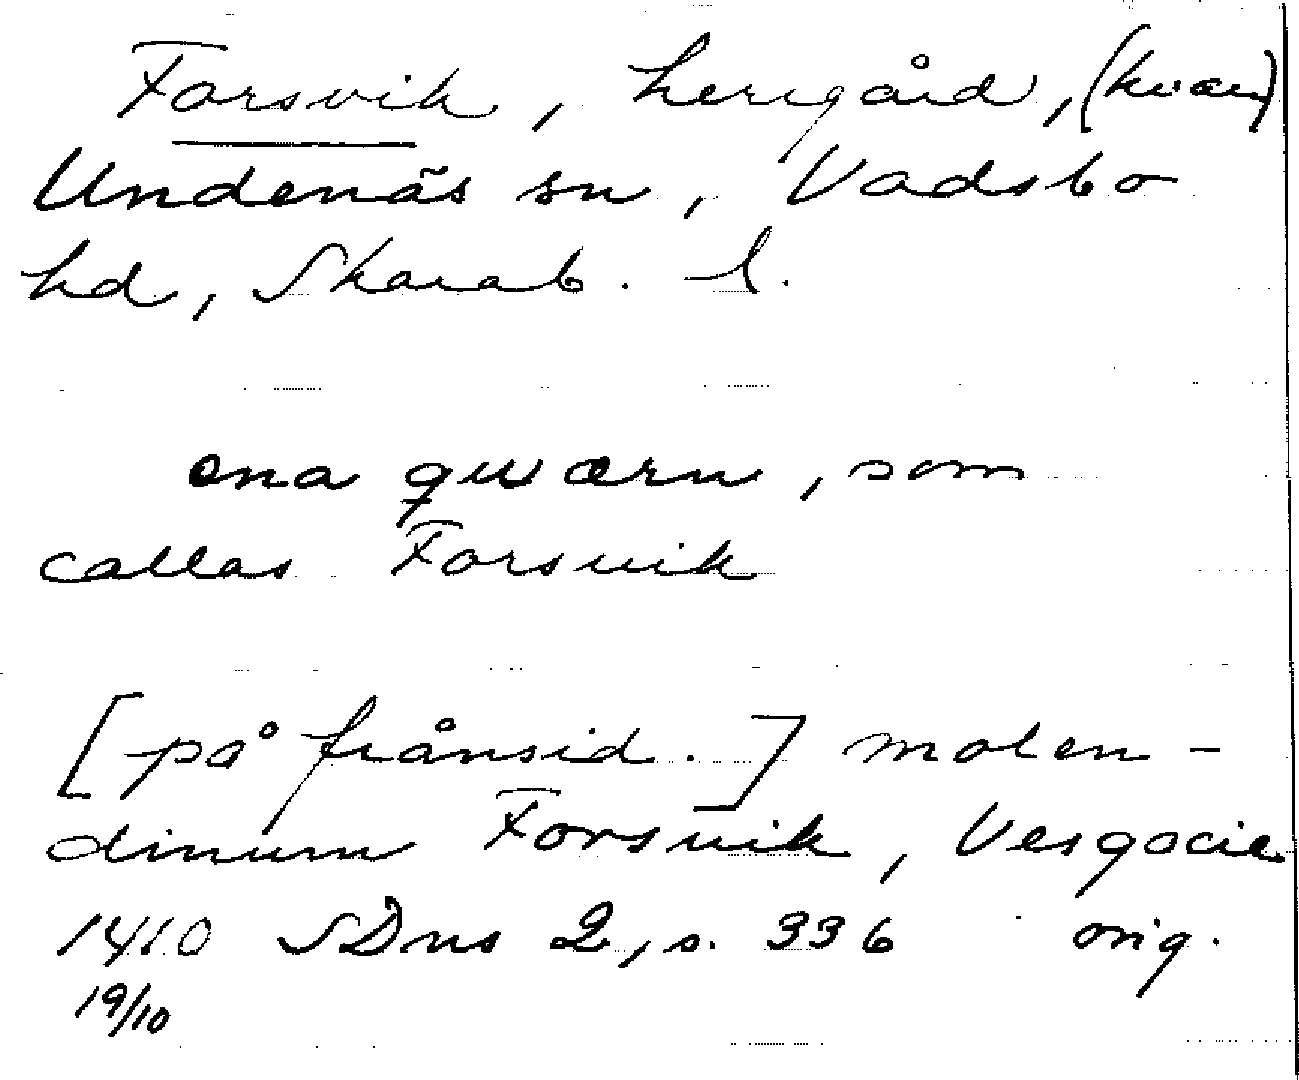 Forsvik, herrgård, (kvarn)
Undenäs sn, Vadsbo
hd, Skarab. l.
ena qwærn, som
callas Forsuik
[på frånsid.] molen-
dinum Forsuik, Vesgocie
1410 SDns 2, s. 336 orig.
19/10